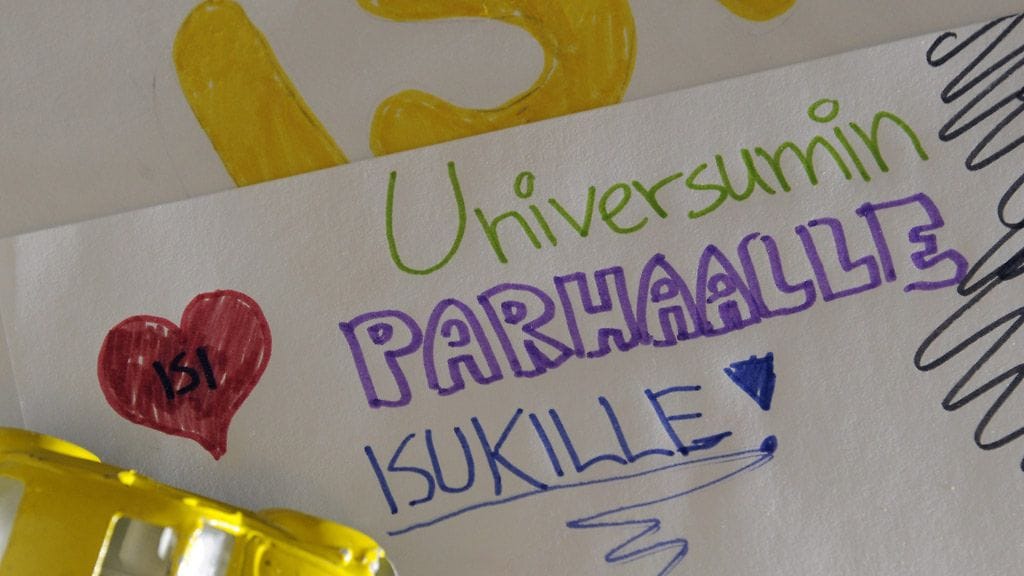 Universumin
PARHAALLE
ISI
ISUKILLE!